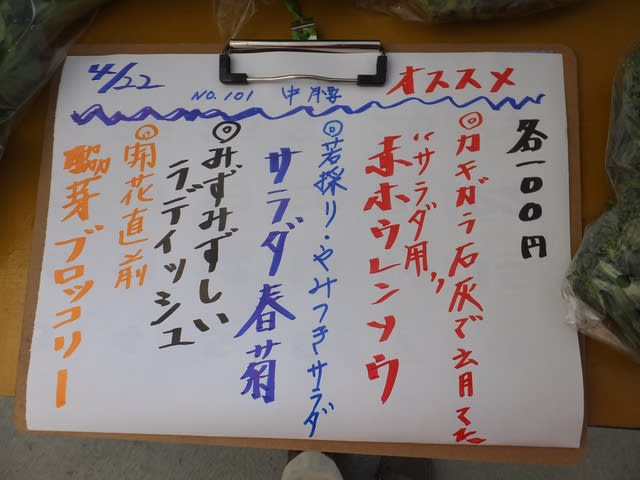 4/22 NO.101 中腰 オススメ
各一〇〇円
◎カキガラ石灰で育てた
"サラダ用"
赤ホウレンソウ
◎若採り・やみつきサラダ
サラダ春菊
◎みずみずしい
ラディッシュ
◎開花直前
脇芽ブロッコリー